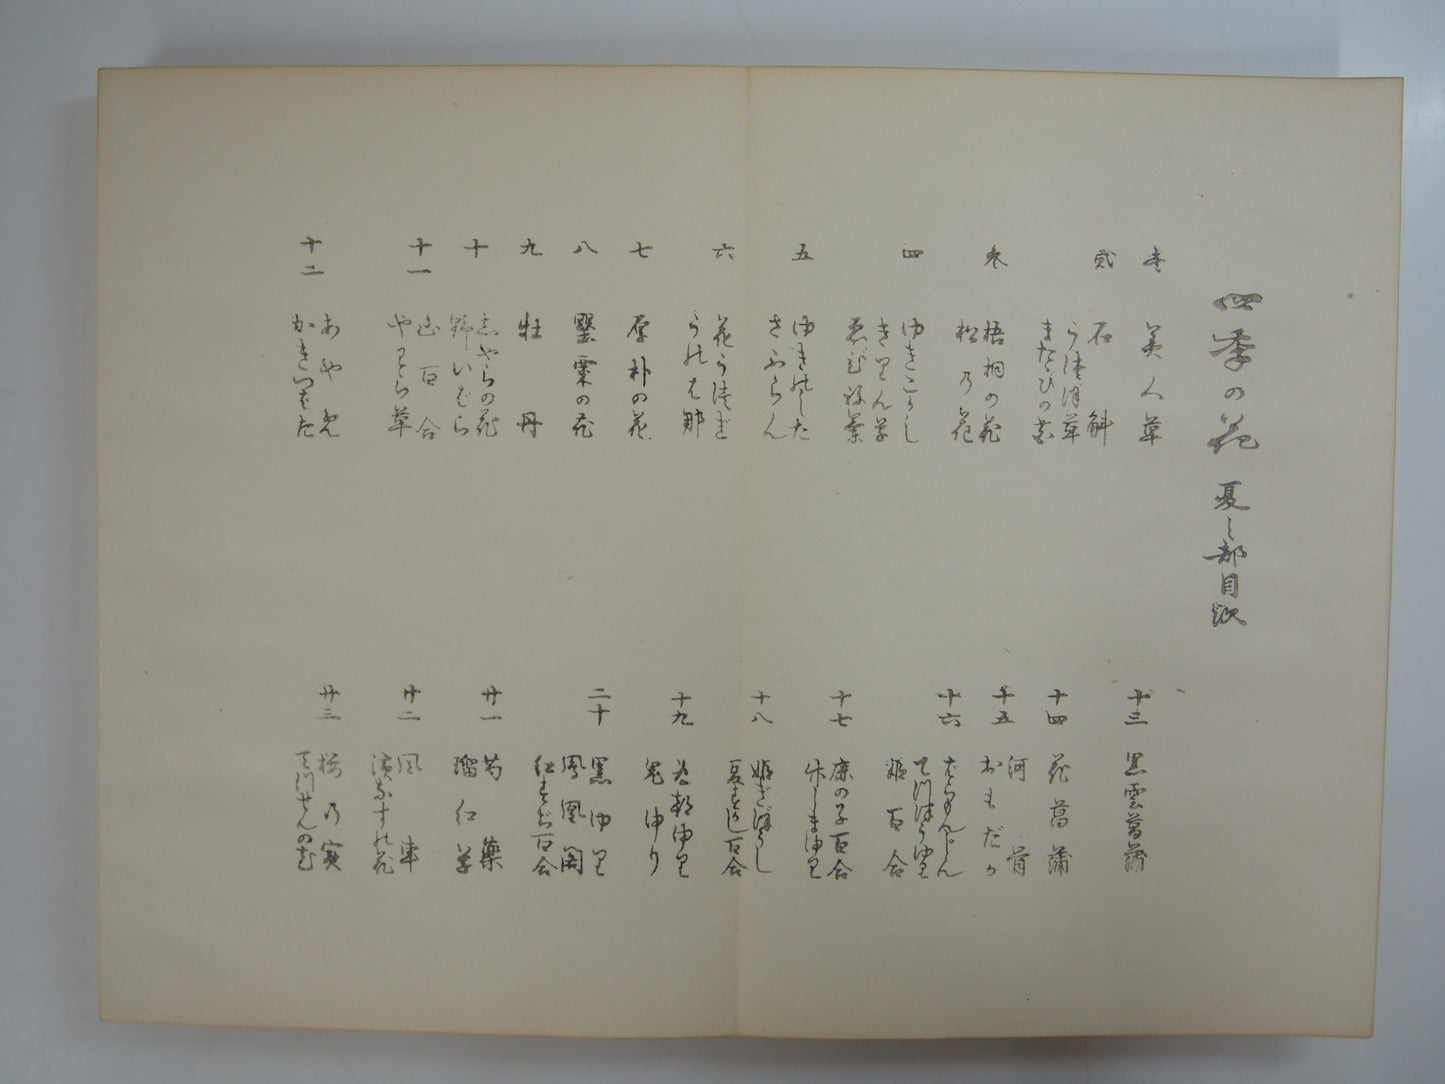 四季の花 夏之部目次
壱 美人草
貳 石斛
うつぼ草
またゝびの花
参 梧桐の花
松乃花
四 ゆきこかし
きりん草
ゑびね蘭
五 ゆきのした
さふらん
六 花うつぎ
うのはな
七 厚朴の花
八 罌粟の花
九 牡丹
十 志やらの花
野いばら
十一 山百合
やくら草
十二 あやめ
かきつばた
十三 黒雲菖蒲
十四 花菖蒲
十五 河骨
おもだか
十六 ばらもんじん
てつぽうゆり
姫百合
十七 鹿の子百合
作しまゆり
十八 姫ぎぼうし
夏すかし百合
十九 為朝ゆり
鬼ゆり
二十 黒ゆり
鳳凰閣
紅すぢ百合
廿一 芍薬
瑠紅草
廿二 風車
濱なすの花
廿三 桜乃実
てつせんの花